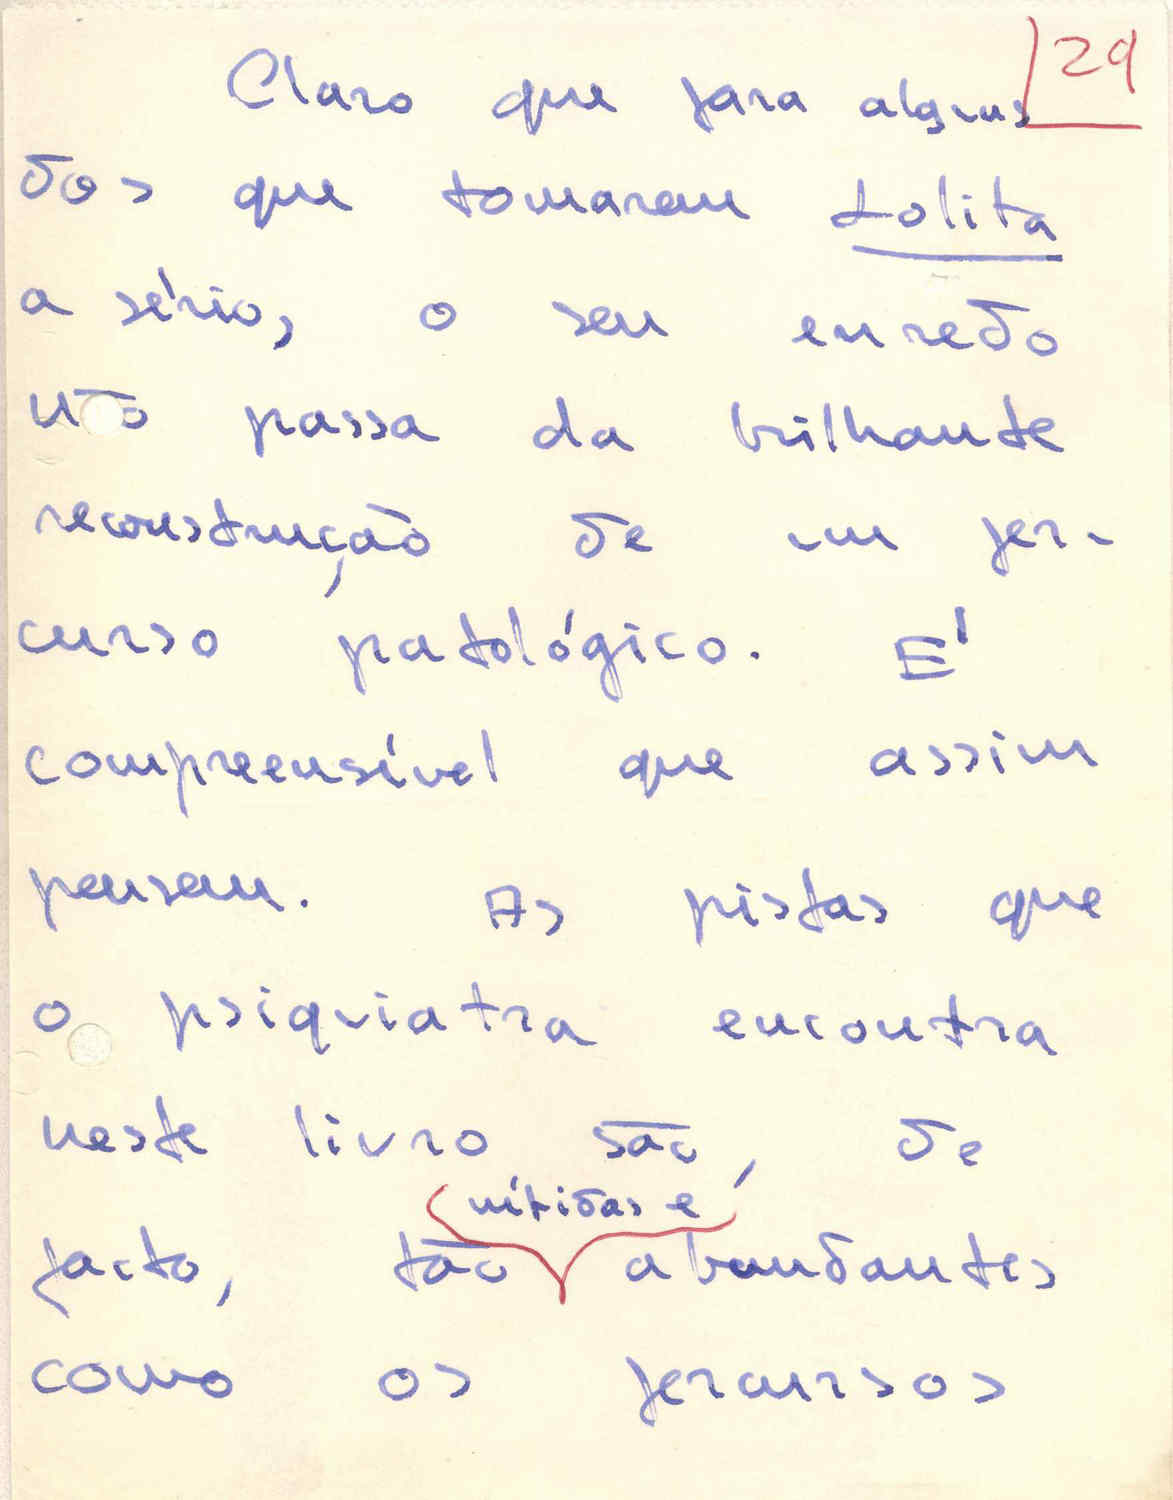 29
Claro que para alguns
dos que tomaram Lolita
a sério, o seu enredo
não passa da brilhante
reconstrução de um per-
curso patológico. É
compreensível que assim
pensem. As pistas que
o psiquiatra encontra
neste livro são, de
nítidas e
facto, tão abundantes
como os percursos